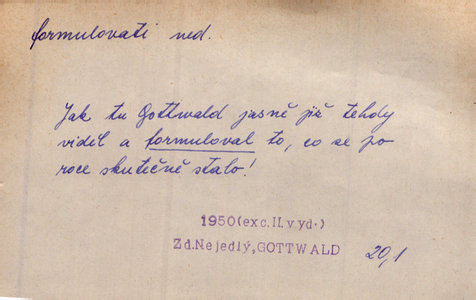 formulovati ned.
Jak tu Gottwald jasně již tehdy
viděl a formuloval to, co se po
roce skutečně stalo!
1950(exc.II.vyd.)
Zd.Nejedlý,GOTTWALD 20,1